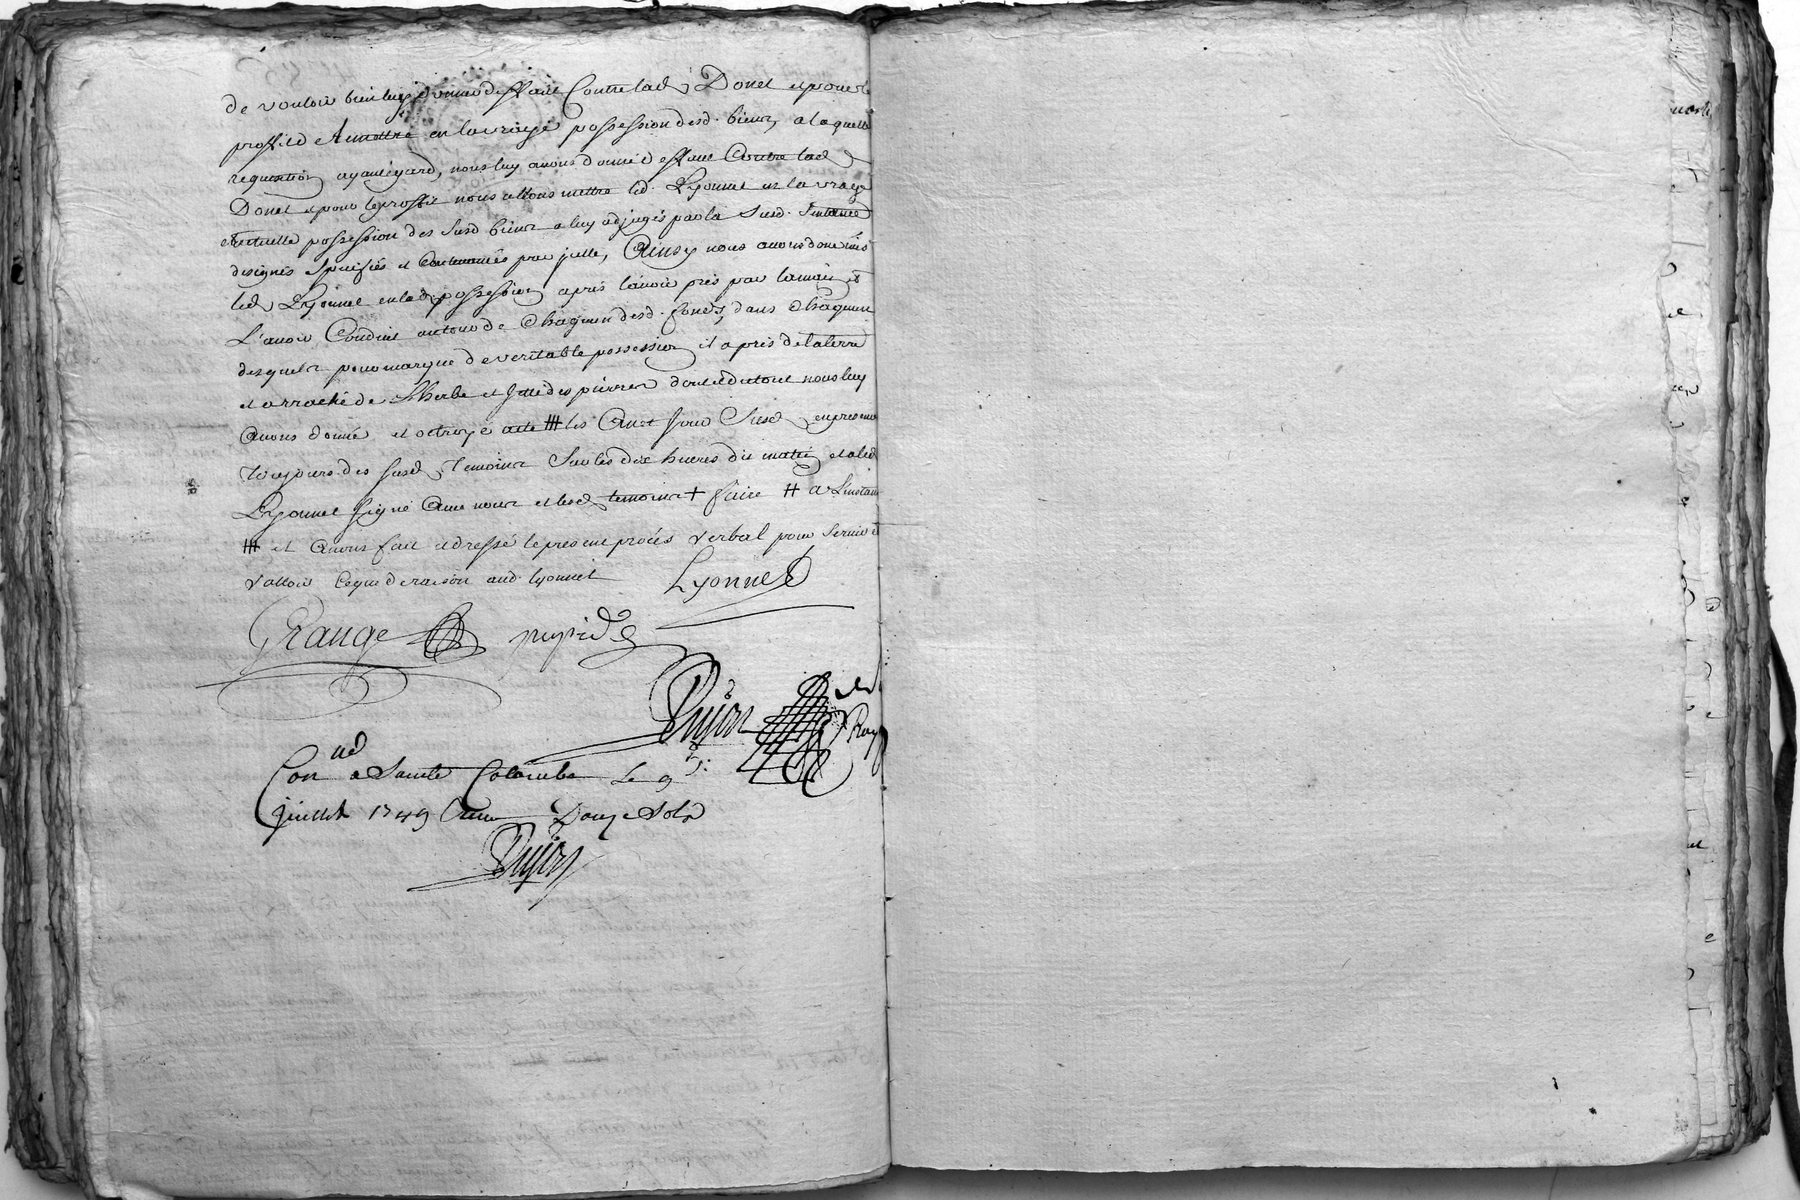 de vouloir bien luy donner deffaut Contre lad. Donet et pour le
proffit de le mettre en la vraye possession desd. biens, a laquelle
requisition ayant egard, nous luy avons donné deffaut Contre lad.
Donet et pour le proffit nous allons mettre led. Lyonnet en la vraye
et actuelle possession des susd biens a luy adjugés par la susd. Sentence
designés specifiés et Contenus par jcelle, Et ainsy nous avons donc mis
led Lyonnet en lad possession après l'avoir pris par la main et
L'avoir Conduit autour de Chaquun desd. fonds, dans Chaquun
desquels pour marque de veritable possession il a pris de la terre
et arraché de L'herbe et jetté des pierres dont et du tout nous luy
avons donné et octroyé acte ⧻ les an et jour susd en presence
toujours des susd temoins sur les dix heures du matin et a led
Lyonnet signé avec nous et lesd temoins + faire ⧺ a L'instant
⧻ et avons fait et dressé le present procès verbal pour servir et
valloir ce que de raison aud. lyonnet Lyonnet
Grange
Dujon
Con.né a Sainte Colombe le 9
juillet 1749 Douze Sols
Dujon